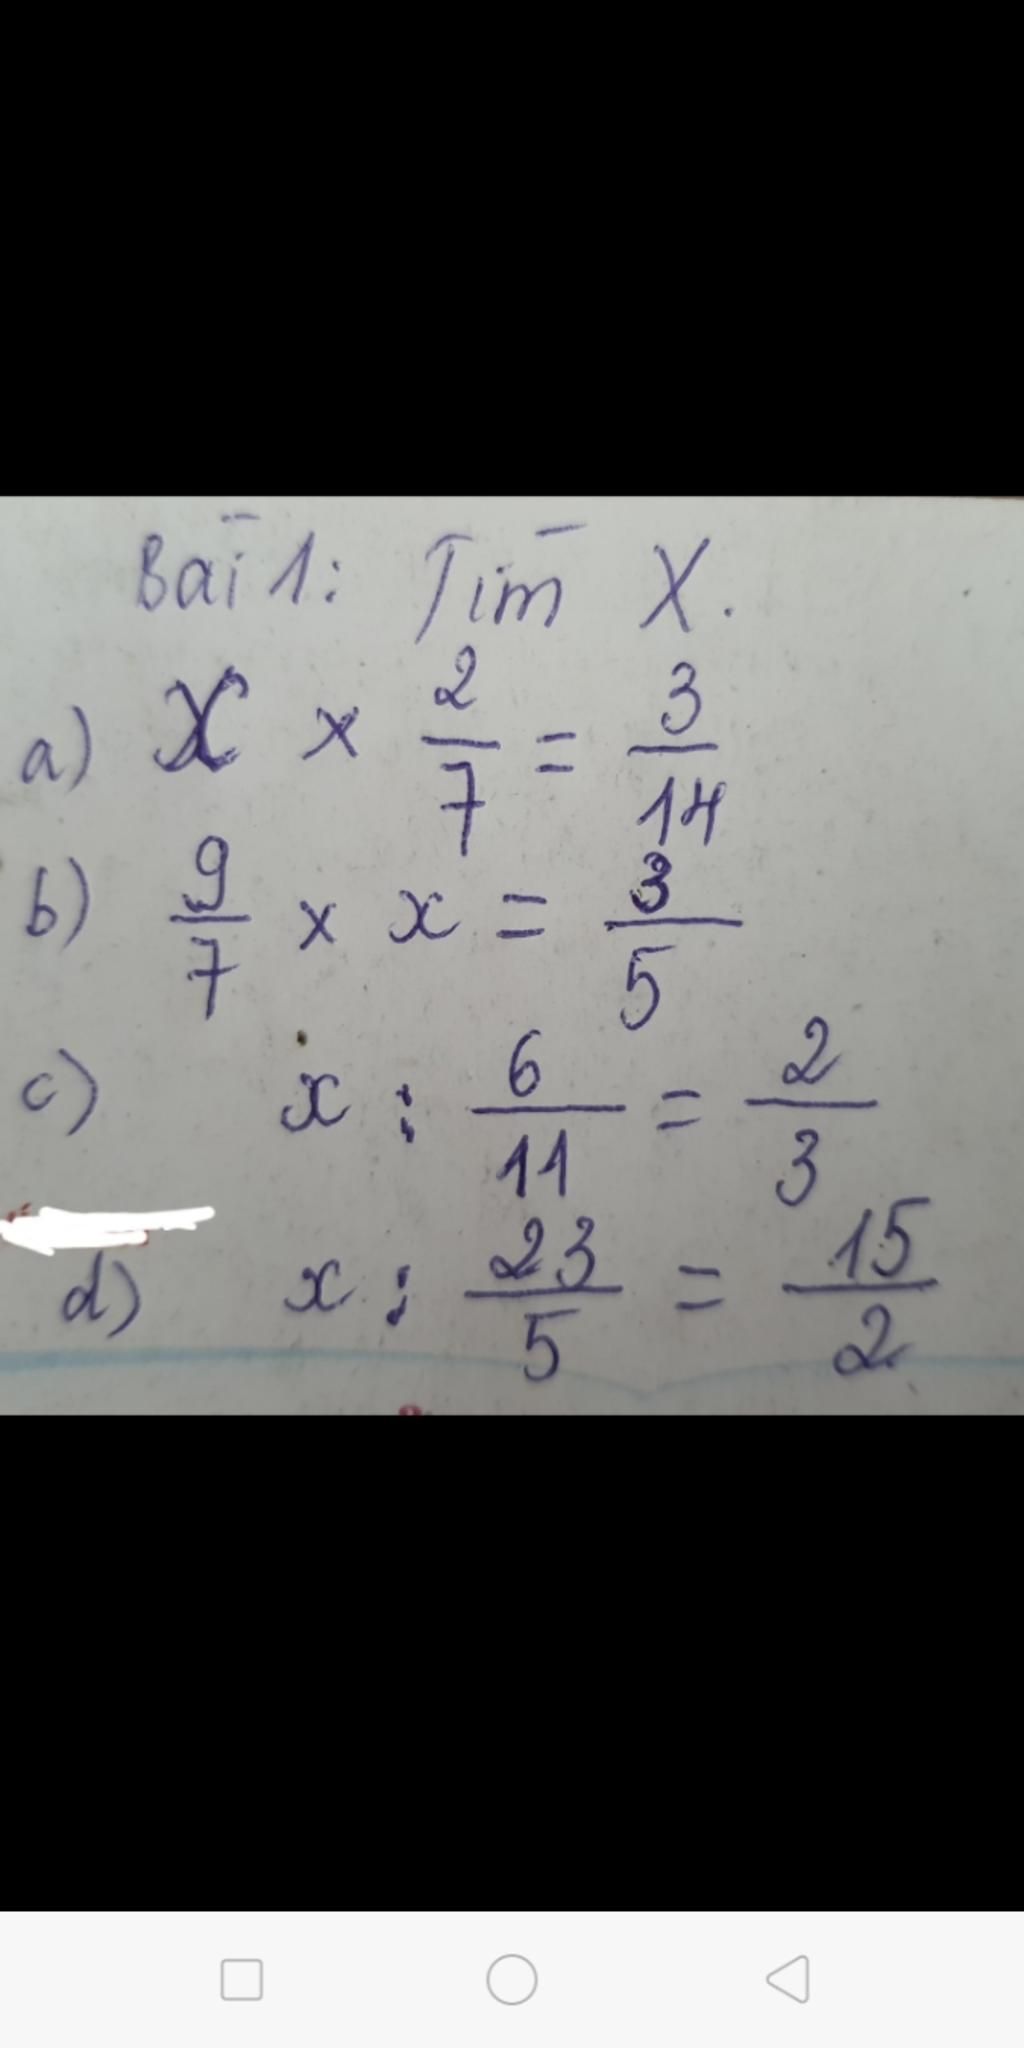 Bài 1: Tìm X.
a) x × 2/7 = 3/14
b) 9/7 × x = 3/5
c) x : 6/11 = 2/3
d) x : 23/5 = 15/2